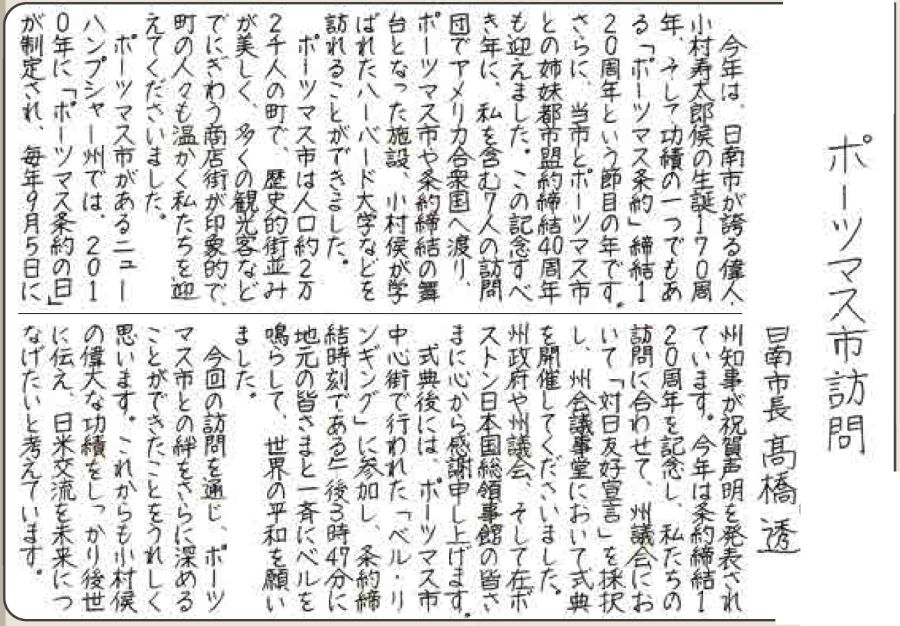 ポーツマス市訪問
日南市長 髙橋 透
今年は、日南市が誇る偉人、
小村寿太郎侯の生誕170周
年、そして功績の一つでもあ
る「ポーツマス条約」締結1
20周年という節目の年です。
さらに、当市とポーツマス市
との姉妹都市盟約締結40周年
も迎えました。この記念すべ
き年に、私を含む7人の訪問
団でアメリカ合衆国へ渡り、
ポーツマス市や条約締結の舞
台となった施設、小村侯が学
ばれたハーバード大学などを
訪れることができました。
ポーツマス市は人口約2万
2千人の町で、歴史的街並み
が美しく、多くの観光客など
でにぎわう商店街が印象的で、
町の人々も温かく私たちを迎
えてくださいました。
ポーツマス市があるニュー
ハンプシャー州では、201
0年に「ポーツマス条約の日」
が制定され、毎年9月5日に
州知事が祝賀声明を発表され
ています。今年は条約締結1
20周年を記念し、私たちの
訪問に合わせて、州議会にお
いて「対日友好宣言」を採択
し、州会議事堂において式典
を開催してくださいました。
州政府や州議会、そして在ボ
ストン日本国総領事館の皆さ
まに心から感謝申し上げます。
式典後には、ポーツマス市
中心街で行われた「ベル・リ
ンギング」に参加し、条約締
結時刻である午後3時47分に
地元の皆さまと一斉にベルを
鳴らして、世界の平和を願い
ました。
今回の訪問を通じ、ポーツ
マス市との絆をさらに深める
ことができたことをうれしく
思います。これからも小村侯
の偉大な功績をしっかり後世
に伝え、日米交流を未来につ
なげたいと考えています。